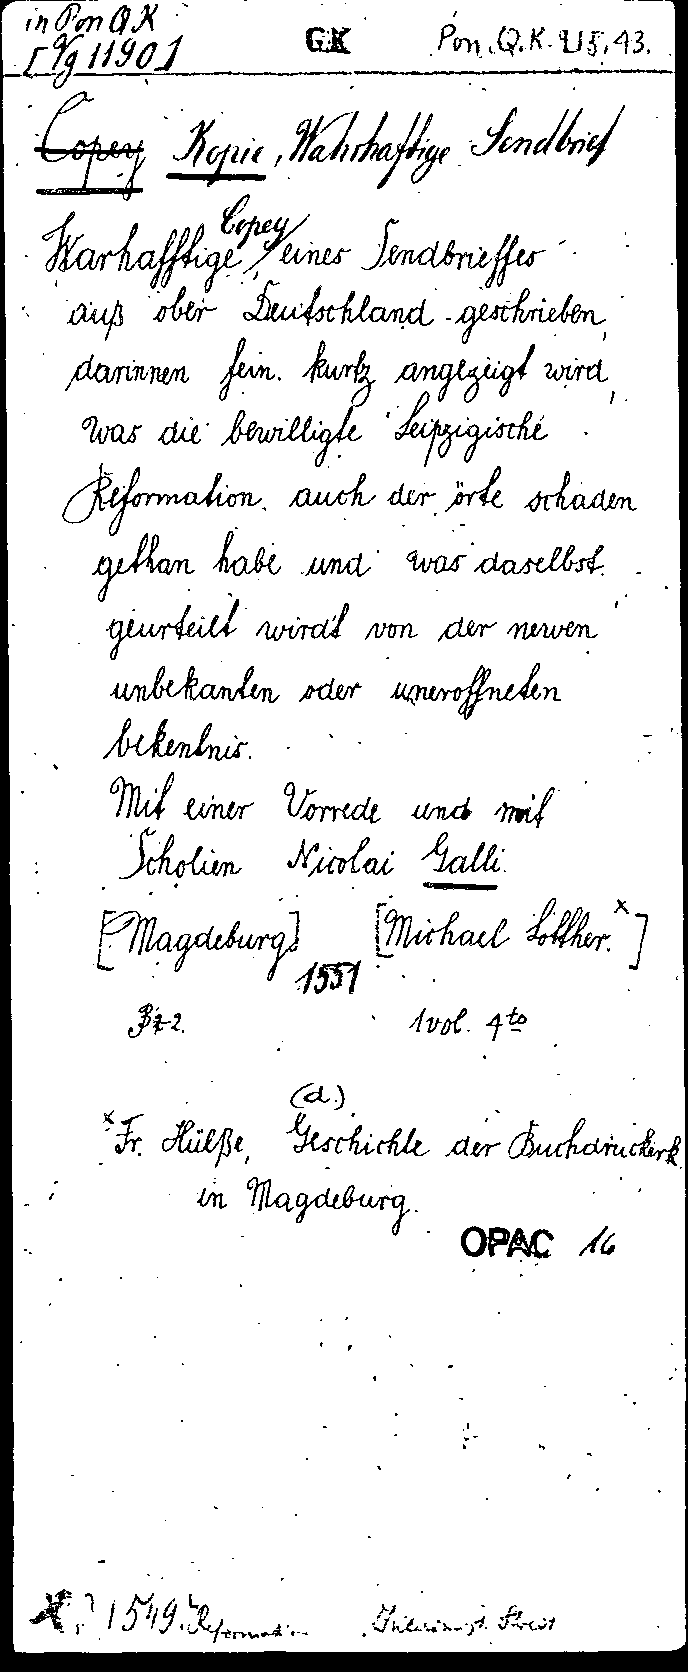 in Pon Q K
[Vg 1190]
GK
Pon. Q. K. 43.
Copey Kopie, Wahrhaftige Sendbrief
Copey
Warhafftige, eines Sendbrieffes
auß ober Deutschland geschrieben,
darinnen fein kurtz angezeigt wird,
was die bewilligte Leipzigische
Reformation auch der örte schaden
gethan habe und was daselbst
geurteilt wirdt von der newen
unbekanten oder uneroffneten
bekentnis.
Mit einer Vorrede und mit
Scholien Nicolai Galli.
[Magdeburg] [Michael Lotther.x]
1551
Bz 2. 1 vol. 4to
(d.)
x Fr. Hülße, Geschichte der Buchdruckerk.
in Magdeburg.
OPAC 16
1549. Reformation Streit